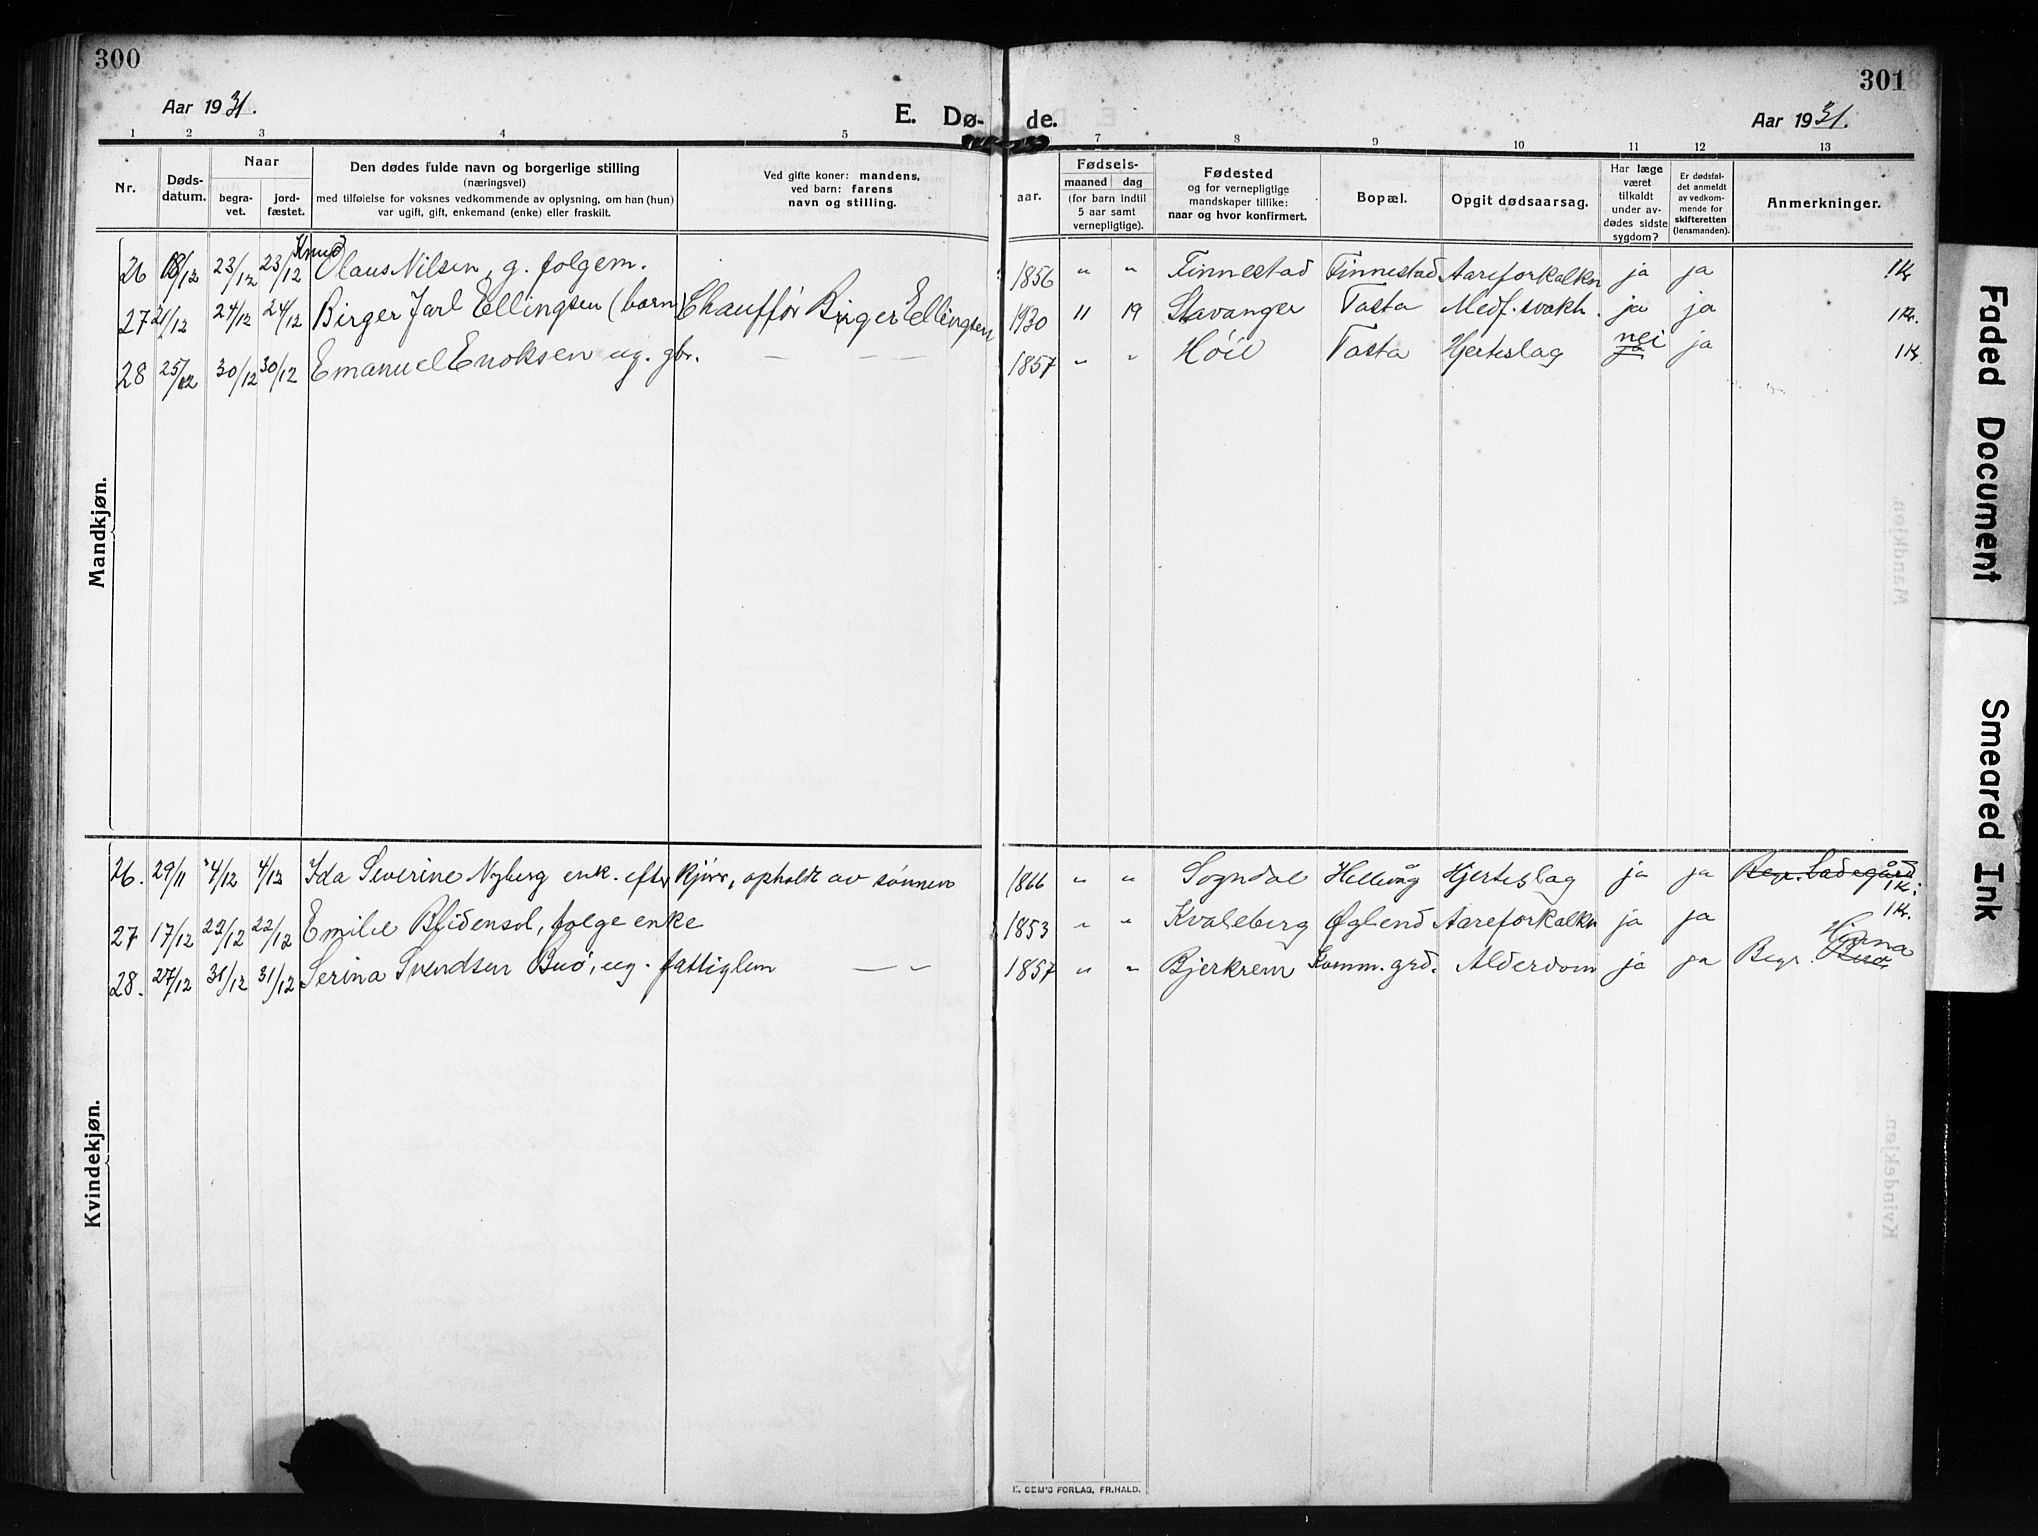 300
301
Aar 1931.
E. Dø-
de.
Aar 1931.
1 2 3 4 5 7 8 9 10 11 12 13
Nr.
Døds-
datum.
Naar
begra-
vet.
jord-
fæstet.
Den dødes fulde navn og borgerlige stilling
(næringsvei)
med tilføielse for voksnes vedkommende av oplysning, om han (hun)
var ugift, gift, enkemand (enke) eller fraskilt.
Ved gifte koner: mandens,
ved barn: farens
navn og stilling.
aar.
Fødsels-
maaned dag
(for barn indtil
5 aar samt
vernepligtige).
Fødested
og for vernepligtige
mandskaper tillike:
naar og hvor konfirmert.
Bopæl.
Opgit dødsaarsag.
Har læge
været
tilkaldt
under av-
dødes sidste
sygdom?
Er dødsfal-
det anmeldt
av vedkom-
mende for
skifteretten
(lensmanden).
Anmerkninger.
Mandkjøn.
Knud
26 18/12 23/12 23/12 Olaus Nilsen, g. folgem. 1856 " " Finnestad Finnestad Aareforkalkn ja ja 1 Kr
27 21/12 24/12 24/12 Birger Jarl Ellingsen (barn) Chauffør Birger Ellingsen 1930 11 19 Stavanger Tasta Medf. svakh. ja ja 1 Kr.
28 25/12 30/12 30/12 Emanuel Enoksen ug. gbr. — — — 1857 " " Høie Tasta Hjerteslag nei ja ja 1 Kr
Kvindekjøn.
26. 29/11 4/12 4/12 Ida Severine Nyberg enk. efter kjøre, opholdt av sønnen 1866 " " Sogndal Hillevåg Hjerteslag ja ja Begr. Ladegård 1 Kr.
27 17/12 22/12 22/12 Emilie Blidensol, folge enke 1853 " " Kvaleberg Øglend Aareforkalkn ja ja 1 Kr.
28. 27/12 31/12 31/12 Serina Svendsen Buø, ug. fattiglem — " 1857 " " Bjerkrem Komm. grd. Alderdom ja ja Begr. Hjorna Buø
E. SEM'S FORLAG, FR.HALD.
Faded Document
Smeared Ink